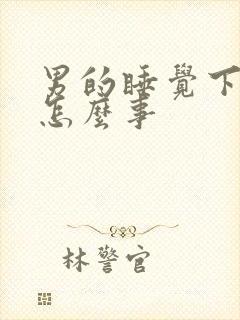 男的睡覺下
怎麼事
林警官